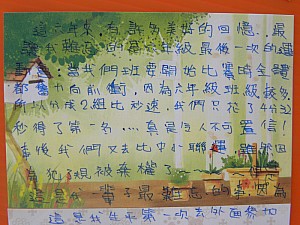 這六年來,有許多美好的回憶,最
讓我難忘的是六年級最後一次的運
動會:當我們班要開始比賽時全體
都奮力向前衝,因為六年級班級較多,
所以分成2組比秒速,我們只花了4分32
秒得了第一名....真是令人不可置信!
事後我們又去比中小聯運,雖然因
為犯規被棄權了~
這是我一輩子最難忘的事,因為
這是我生平第一次去外面參加